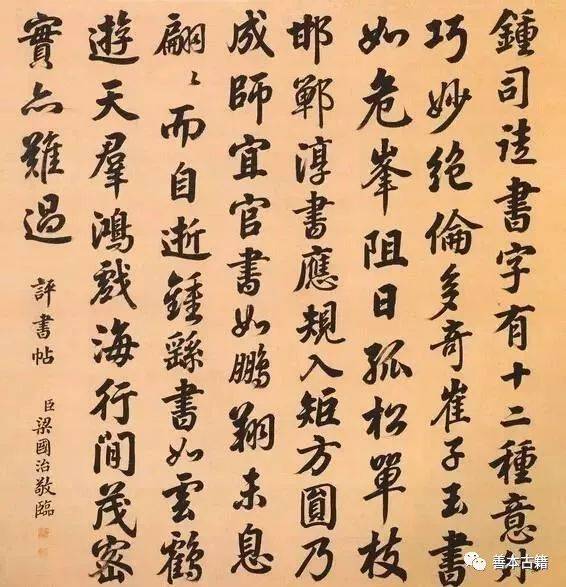 鍾司徒書字有十二種意
巧妙絕倫多奇崔子玉書
如危峯阻日孤松單枝
邯鄲淳書應規入矩方圓乃
成師宜官書如鵬翔未息
翩〻而自逝鍾繇書如雲鶴
遊天羣鴻戲海行間茂密
實亦難過
評書帖
臣梁國治敬臨
善本古籍